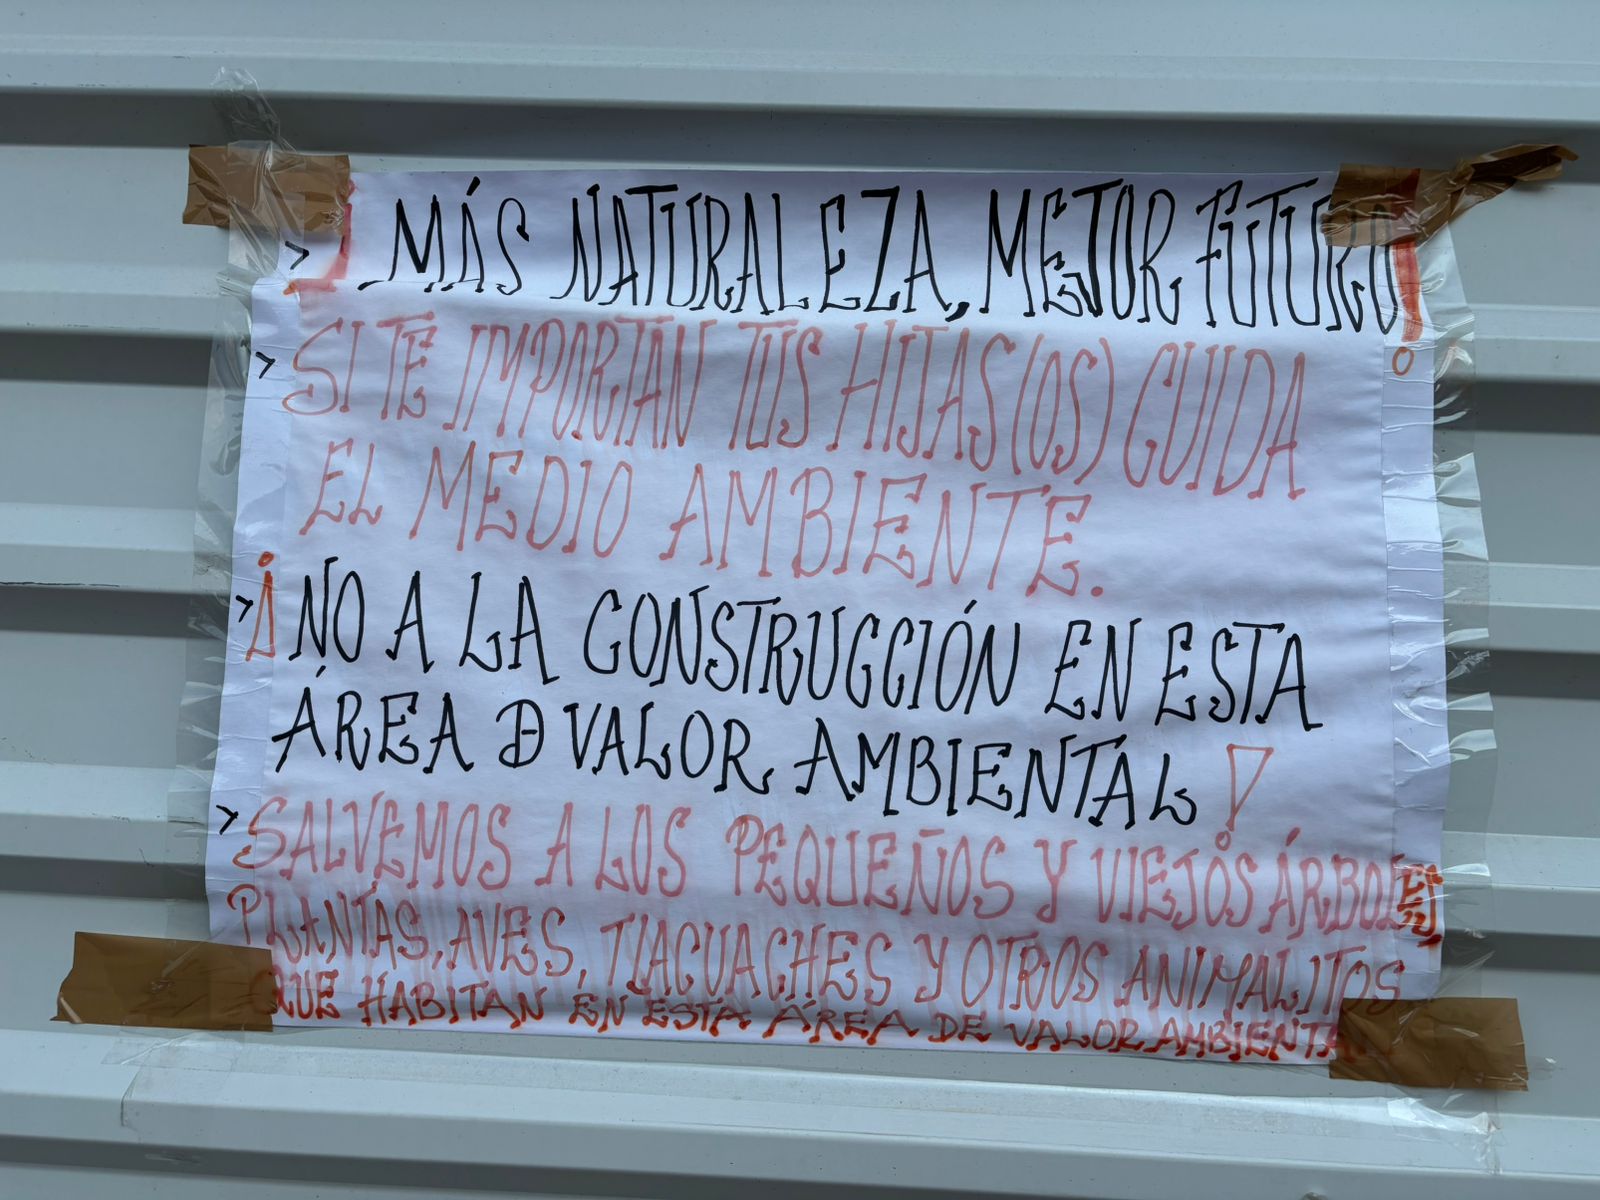 > ¡ MÁS NATURALEZA, MEJOR FUTURO!
> SI TE IMPORTAN TUS HIJAS(OS) CUIDA
EL MEDIO AMBIENTE.
> ¡NO A LA CONSTRUCCIÓN EN ESTA
ÁREA D VALOR AMBIENTAL!
> SALVEMOS A LOS PEQUEÑOS Y VIEJOS ÁRBOLES,
PLANTAS, AVES, TLACUACHES Y OTROS ANIMALITOS
QUE HABITAN EN ESTA ÁREA DE VALOR AMBIENTAL